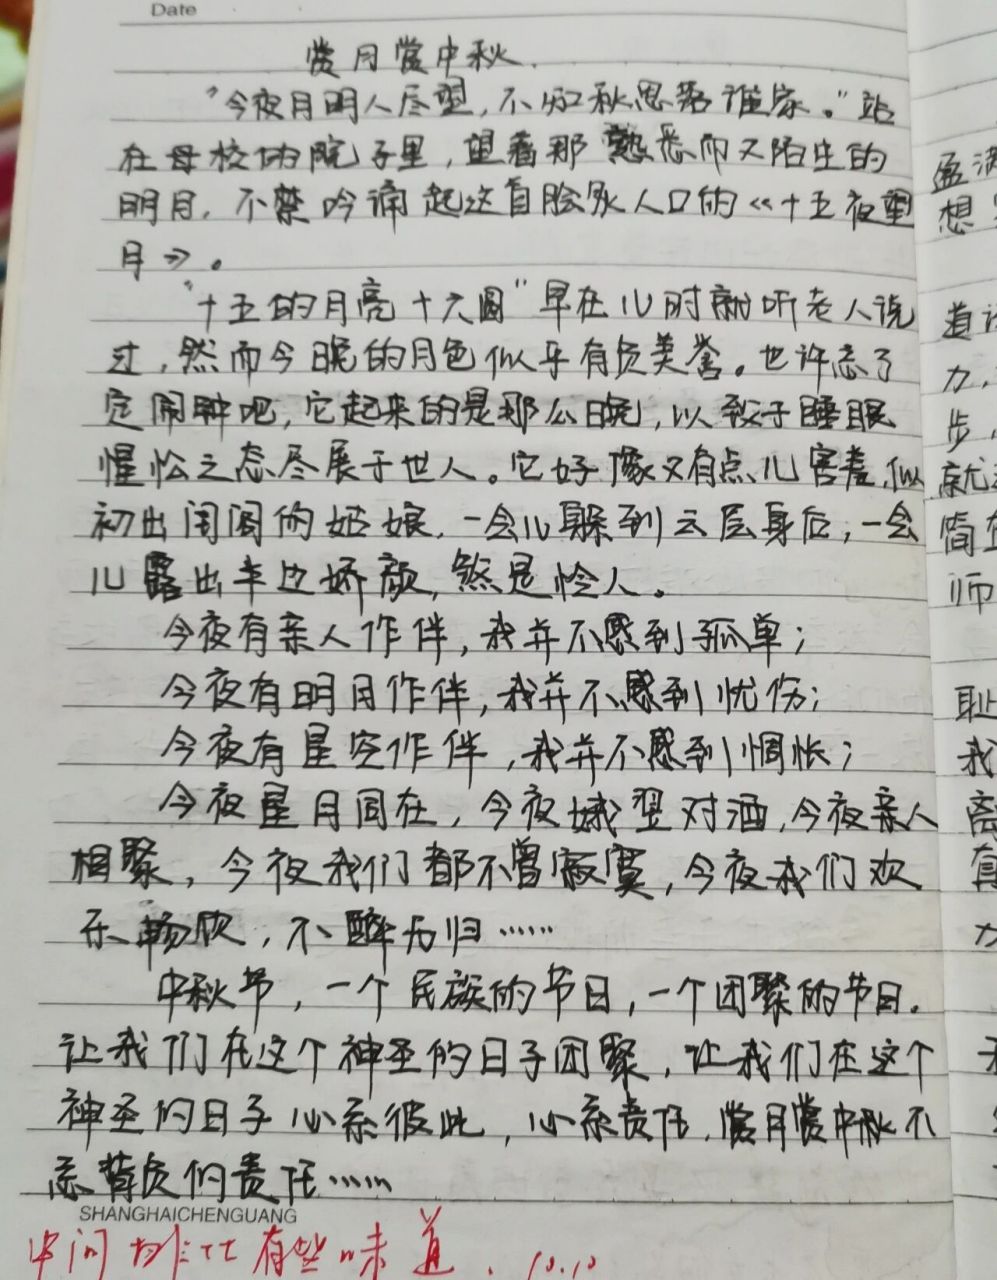 Date
赏月赏中秋.
"今夜月明人尽望,不知秋思落谁家。"站
在母校的院子里,望着那熟悉而又陌生的
明月,不禁吟诵起这首脍炙人口的《十五夜望
月》。
"十五的月亮十六圆"早在儿时就听老人说
过,然而今晚的月色似乎有负美誉。也许忘了
定闹钟吧,它起来的是那么晚,以致于睡眼
惺忪之态尽展于世人。它好像又有点儿害羞,似
初出闺阁的姑娘,一会儿躲到云层身后;一会
儿露出半边娇颜,煞是怜人。
今夜有亲人作伴,我并不感到孤单;
今夜有明月作伴,我并不感到忧伤;
今夜有星空作伴,我并不感到惆怅;
今夜星月同在,今夜娥翌对酒,今夜亲人
相聚,今夜我们都不曾寂寞,今夜我们欢
乐畅饮,不醉为归……
中秋节,一个民族的节日,一个团聚的节日。
让我们在这个神圣的日子团聚,让我们在这个
神圣的日子心系彼此,心系责任,赏月赏中秋不
忘背负的责任……
SHANGHAICHENGUANG
中间排比有些味道. 10.10
盈满
想
道
力,
步,
就
简直
师
耻
我
离
真
力